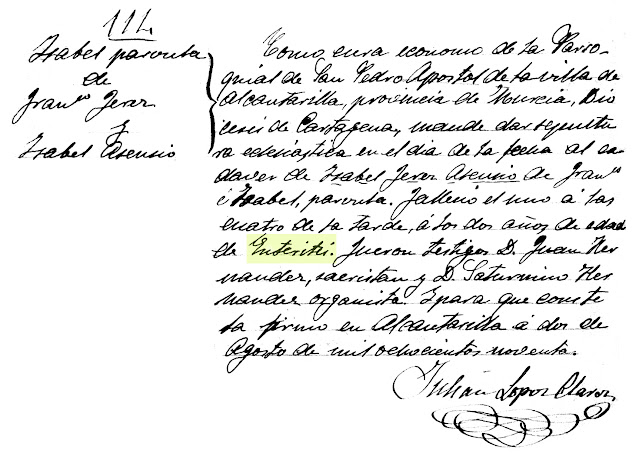 114
Isabel parvuta
de
Fran.co Jerez
y
Isabel Asensio
Como cura economo de la Parro-
quial de San Pedro Apostol de la villa de
Alcantarilla, provincia de Murcia, Dio
cesis de Cartagena, mande dar sepultu
ra eclesiastica en el dia de la fecha al ca-
daver de Isabel Jerez Asensio de Fran.co
é Isabel, parvuta. Falleció el uno á las
cuatro de la tarde, á los dos años de edad
de Enteritis. Fueron testigos D. Juan Her
nandez, sacristan y D. Saturnino Her
nandez organista. Y para que conste
la firmo en Alcantarilla á dos de
Agosto de mil ochocientos noventa.
Julián Lopez Claros